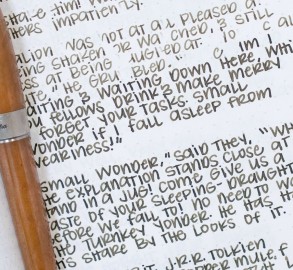 SHARE TIM! WHA
HERS IMPATIENTLY.
ALION WAS NOT AT ALL PLEASED A
EING SHAKEN OR WATCHED, & STILL
ESS AT BEING LAUGHED AT. TO C
IT," HE GRUMBLED. " I'M I
WAITING & WAITING DOWN HERE, WHI
YOU FELLOWS DRINK & MAKE MERRY
FORGET YOUR TASKS. SMALL
WONDER IF I FALL ASLEEP FROM
WEARINESS!"
SMALL WONDER," SAID THEY, "WH
HE EXPLANATION STANDS CLOSE AT
HAND IN A JUG! COME GIVE US A
TASTE OF YOUR SLEEPING-DRAUGHT
BEFORE WE FALL TO! NO NEED TO W
HE TURNKEY YONDER. HE HAS HA
HIS SHARE BY THE LOOKS OF IT.
IT, J.R.R. TOLKIEN